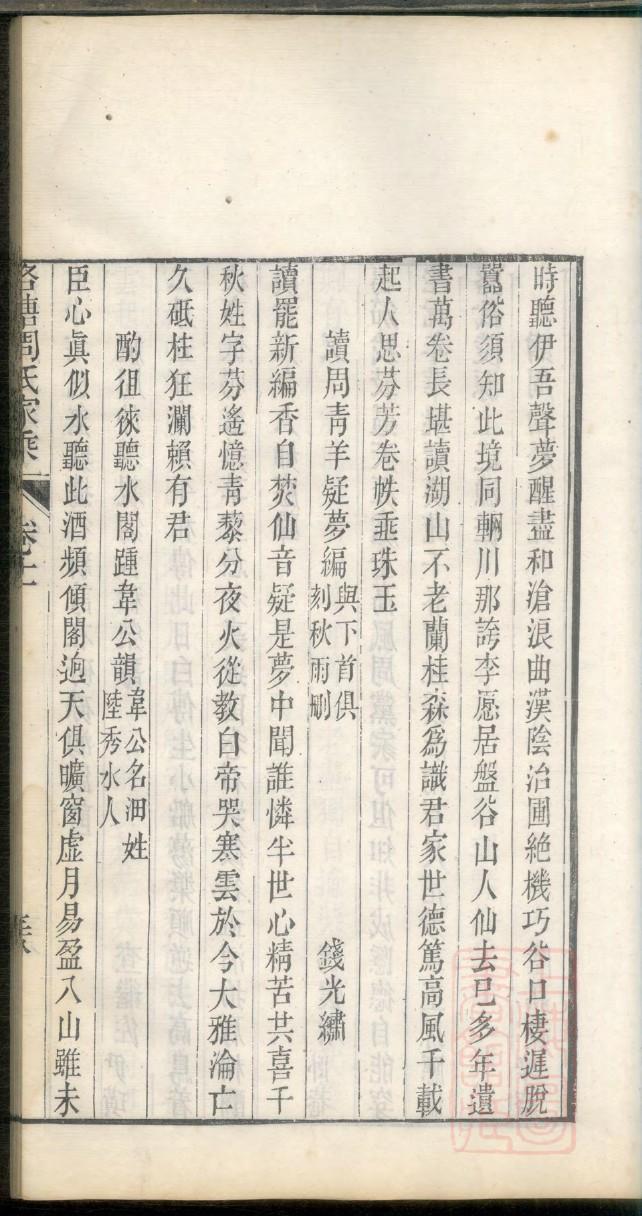 時聽伊吾聲夢醒盡和滄浪曲漢陰治圃絕機巧谷口棲遲脫
囂俗須知此境同輞川那誇李愿居盤谷山人仙去已多年遺
書萬卷長堪讀湖山不老蘭桂森爲識君家世德篤高風千載
起人思芬芳卷帙垂珠玉
讀周青羊疑夢編與下首俱刻秋雨刪 錢光繡
讀罷新編香自焚仙音疑是夢中聞誰憐半世心精苦共喜千
秋姓字芬遙憶青藜分夜火從教白帝哭寒雲於今大雅淪亡
久砥柱狂瀾賴有君
酌徂徠聽水閣踵韋公韻韋公名沺姓陸秀水人
臣心眞似水聽此酒頻傾閣逈天俱曠窗虛月易盈入山雖未
洛塘周氏家乘 卷十